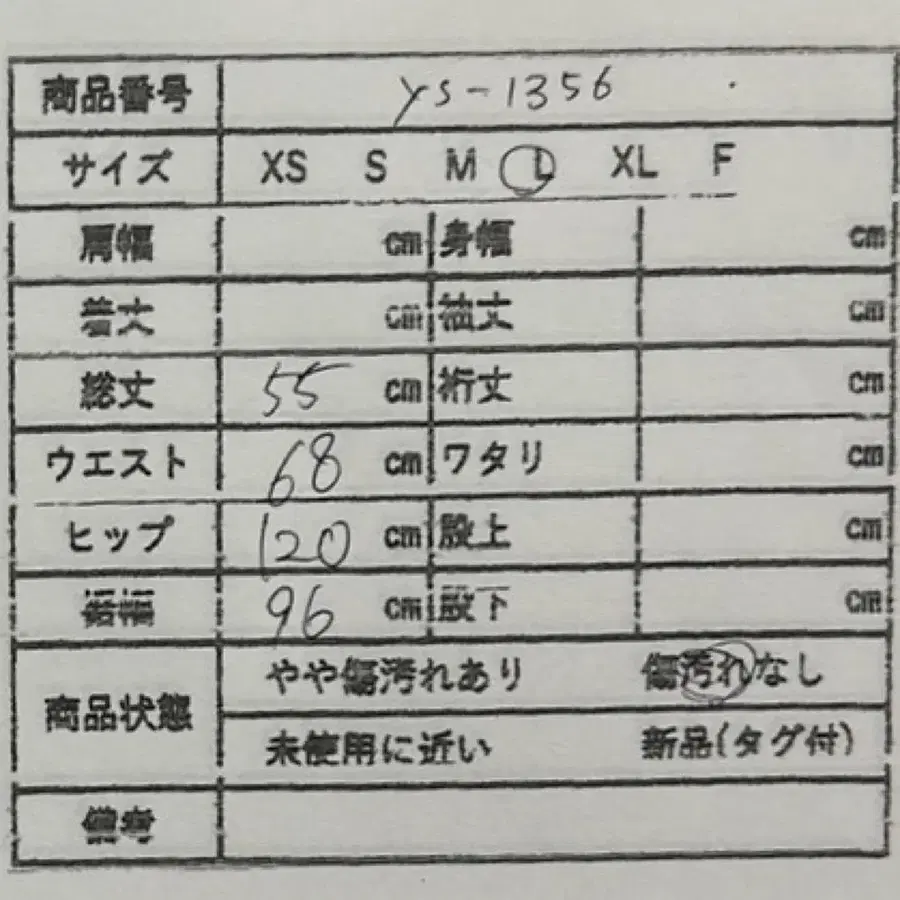 商品番号 ys-1356
サイズ XS S M L XL F
肩幅 cm 身幅 cm
着丈 cm 袖丈 cm
総丈 55 cm 裄丈 cm
ウエスト 68 cm ワタリ cm
ヒップ 120 cm 股上 cm
裾幅 96 cm 股下 cm
商品状態 やや傷汚れあり 傷汚れなし
未使用に近い 新品(タグ付)
備考